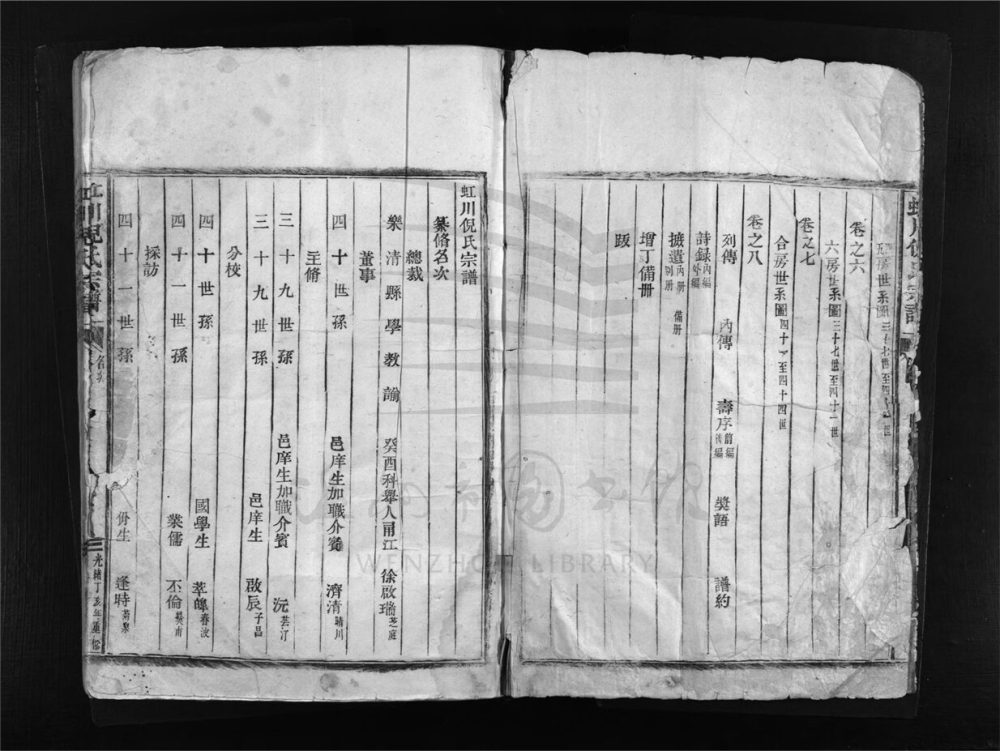 五房世系圖三十七世至四十一世
卷之六
六房世系圖三十七世至四十一世
卷之七
合房世系圖四十一至四十四世
卷之八
列傳 內傳 壽序前編後編 獎語 譜約
詩録內編外編
摭遺內册別册 備册
增丁備冊
跋
虹川倪氏宗譜
纂脩名次
總裁
樂清縣學教諭 癸酉科舉人甬江 徐啟瑞芝庭
董事
四十世孫 邑庠生加職介賓 濟清晴川
主脩
三十九世孫 邑庠生加職介賓 沅芸汀
三十九世孫 邑庠生 啟辰子昌
分校
四十世孫 國學生 萃皥春波
四十一世孫 業儒 丕倫
採訪
四十一世孫 佾生 逢時
虹川倪氏宗譜 光緒丁亥年重
WENZHOU LIBRARY